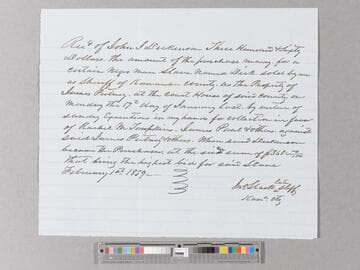 Recd of John J Dickinson Three Hundred & sixty
Dollars the amount of the purchase money for a
certain Negro Man Slave Named Dick sold by me
as Sheriff of Kanawha county as the Property of
James Putney, at the Court House of said county on
Monday the 17th day of January last by virtue of
sundry Executions in my hands for collection in favor
of Rachel M. Tompkins, James Post & others against
said James Putney & others. When said Dickinson
became the Purchaser, at the said sum of
that being the highest bid for said Slave
February 1st 1859
Jno Slack late Shff
Kana Cty